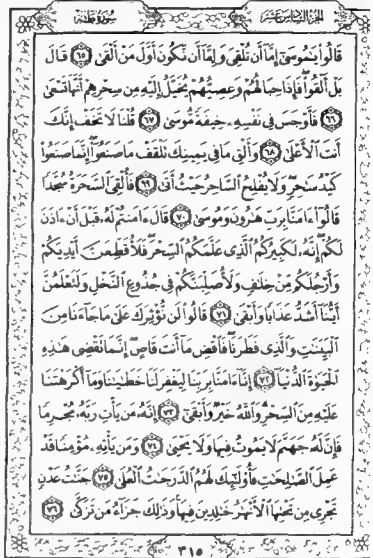 الجزء السادس عشر
سورة طه
قَالُوا۟ يَٰمُوسَىٰٓ إِمَّآ أَن تُلْقِىَ وَإِمَّآ أَن نَّكُونَ أَوَّلَ مَنْ أَلْقَىٰ ٦٥ قَالَ
بَلْ أَلْقُوا۟ فَإِذَا حِبَالُهُمْ وَعِصِيُّهُمْ يُخَيَّلُ إِلَيْهِ مِن سِحْرِهِمْ أَنَّهَا تَسْعَىٰ
٦٦ فَأَوْجَسَ فِى نَفْسِهِۦ خِيفَةً مُّوسَىٰ ٦٧ قُلْنَا لَا تَخَفْ إِنَّكَ
أَنتَ ٱلْأَعْلَىٰ ٦٨ وَأَلْقِ مَا فِى يَمِينِكَ تَلْقَفْ مَا صَنَعُوٓا۟ إِنَّمَا صَنَعُوا۟
كَيْدُ سَٰحِرٍ وَلَا يُفْلِحُ ٱلسَّاحِرُ حَيْثُ أَتَىٰ ٦٩ فَأُلْقِىَ ٱلسَّحَرَةُ سُجَّدًا
قَالُوٓا۟ ءَامَنَّا بِرَبِّ هَٰرُونَ وَمُوسَىٰ ٧٠ قَالَ ءَامَنتُمْ لَهُۥ قَبْلَ أَنْ ءَاذَنَ
لَكُمْ إِنَّهُۥ لَكَبِيرُكُمُ ٱلَّذِى عَلَّمَكُمُ ٱلسِّحْرَ فَلَأُقَطِّعَنَّ أَيْدِيَكُمْ
وَأَرْجُلَكُم مِّنْ خِلَٰفٍ وَلَأُصَلِّبَنَّكُمْ فِى جُذُوعِ ٱلنَّخْلِ وَلَتَعْلَمُنَّ
أَيُّنَآ أَشَدُّ عَذَابًا وَأَبْقَىٰ ٧١ قَالُوا۟ لَن نُّؤْثِرَكَ عَلَىٰ مَا جَآءَنَا مِنَ
ٱلْبَيِّنَٰتِ وَٱلَّذِى فَطَرَنَا فَٱقْضِ مَآ أَنتَ قَاضٍ إِنَّمَا تَقْضِى هَٰذِهِ
ٱلْحَيَوٰةَ ٱلدُّنْيَآ ٧٢ إِنَّآ ءَامَنَّا بِرَبِّنَا لِيَغْفِرَ لَنَا خَطَٰيَٰنَا وَمَآ أَكْرَهْتَنَا
عَلَيْهِ مِنَ ٱلسِّحْرِ وَٱللَّهُ خَيْرٌ وَأَبْقَىٰٓ ٧٣ إِنَّهُۥ مَن يَأْتِ رَبَّهُۥ مُجْرِمًا
فَإِنَّ لَهُۥ جَهَنَّمَ لَا يَمُوتُ فِيهَا وَلَا يَحْيَىٰ ٧٤ وَمَن يَأْتِهِۦ مُؤْمِنًا قَدْ
عَمِلَ ٱلصَّٰلِحَٰتِ فَأُو۟لَٰٓئِكَ لَهُمُ ٱلدَّرَجَٰتُ ٱلْعُلَىٰ ٧٥ جَنَّٰتُ عَدْنٍ
تَجْرِى مِن تَحْتِهَا ٱلْأَنْهَٰرُ خَٰلِدِينَ فِيهَا وَذَٰلِكَ جَزَآءُ مَن تَزَكَّىٰ ٧٦
٣١٥